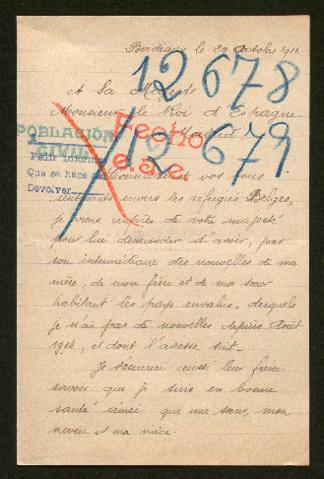 Bordeaux le 20 Octobre 191
12 678
A Sa Majesté
Monsieur le Roi d'Espagne
Madrid
Fecho
12 679
POBLACIÓN
CIVIL
e.s.e.
Pedir inform
Que se hace
Devolver
Connaissant vos bons
sentiments envers les réfugiés Belges,
je viens auprès de votre majesté
pour lui demander d'avoir, par
son intermédiaire des nouvelles de ma
mère, de mon frère et de ma sœur
habitant les pays envahis, desquels
je n'ai pas de nouvelles depuis Août
1914, et dont l'adresse suit.
Je désirerai aussi leur faire
savoir que je suis en bonne
santé ainsi que ma sœur, mon
neveu et ma nièce.